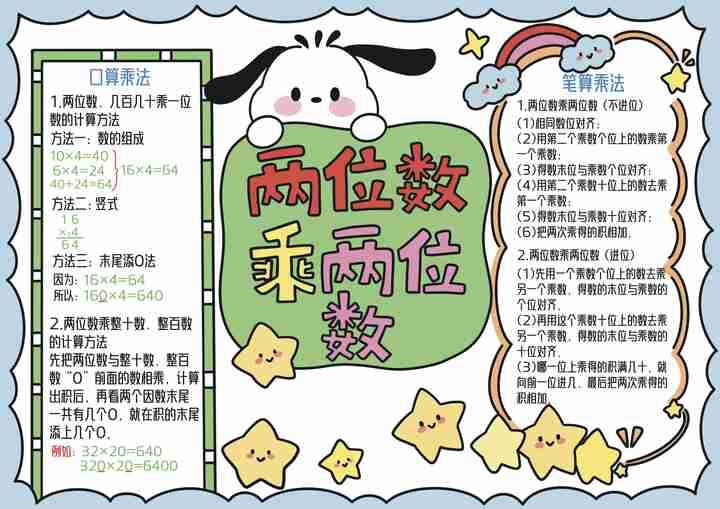 口算乘法
1.两位数、几百几十乘一位
数的计算方法
方法一：数的组成
10×4=40
6×4=24
40+24=64
16×4=64
方法二：竖式
16
×4
64
方法三：末尾添0法
因为：16×4=64
所以：160×4=640
2.两位数乘整十数、整百数
的计算方法
先把两位数与整十数、整百
数“0”前面的数相乘，计算
出积后，再看两个因数末尾
一共有几个0，就在积的末尾
添上几个0。
例如：32×20=640
320×20=6400
两位数
乘两位
数
笔算乘法
1.两位数乘两位数（不进位）
(1)相同数位对齐；
(2)用第二个乘数个位上的数乘第
一个乘数；
(3)得数末位与乘数个位对齐；
(4)用第二个乘数十位上的数去乘
第一个乘数；
(5)得数末位与乘数十位对齐；
(6)把两次乘得的积相加。
2.两位数乘两位数（进位）
(1)先用一个乘数个位上的数去乘
另一个乘数，得数的末位与乘数的
个位对齐。
(2)再用这个乘数十位上的数去乘
另一个乘数，得数的末位与乘数的
十位对齐。
(3)哪一位上乘得的积满几十，就
向前一位进几，最后把两次乘得的
积相加。